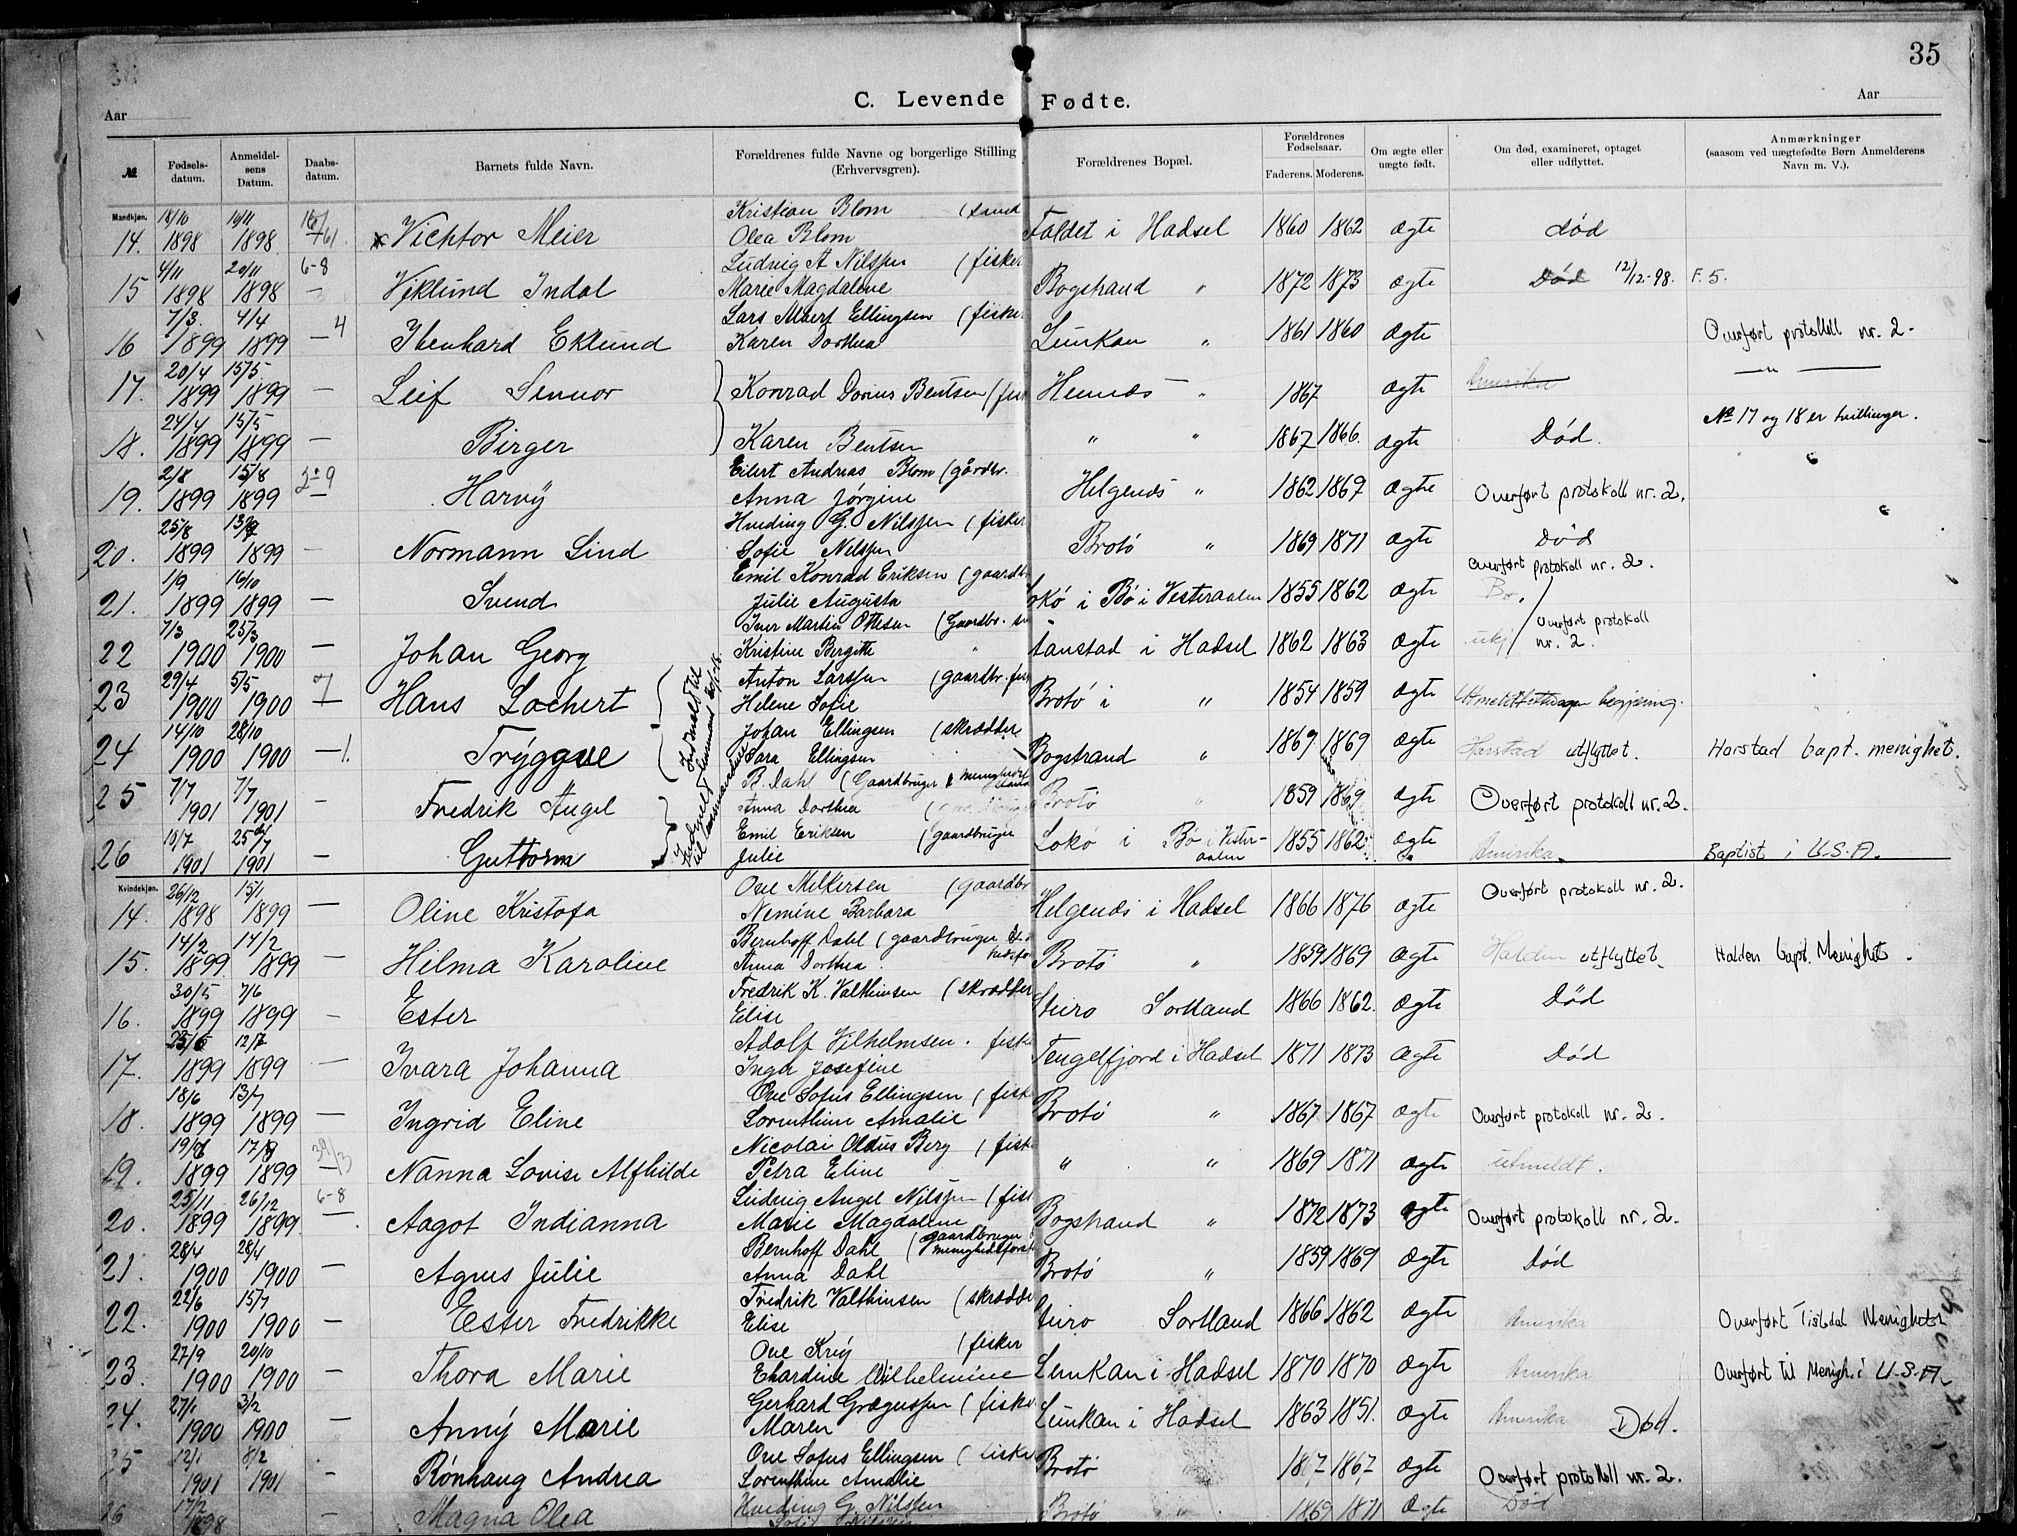 35
C. Levende Fødte.
Aar Aar
№ Fødselsdatum. Anmeldelsens Datum. Daabsdatum. Barnets fulde Navn. Forældrenes fulde Navne og borgerlige Stilling (Erhvervsgren). Forældrenes Bopæl. Forældrenes Fødselsaar. Faderens. Moderens. Om ægte eller uægte født. Om død, examineret, optaget eller udflyttet. Anmærkninger (saasom ved uægtefødte Børn Anmelderens Navn m. V.).
Mandkjøn. 18/10 10/11 Kristian Blom
14. 1898 1898 Vichtor Meier Olea Blom Faldet i Hadsel 1860 1862 ægte død
4/11 20/11 6-8 Ludvig A Nilssen (fisker
15 1898 1898 — Viklund Indal Marie Magdalene Bogstrand " 1872 1873 ægte Død 12/12-98. F. 5.
7/3. 4/4 Lars Albert Ellingsen (fisker
16 1899 1899 — 4 Ibenhard Eklund Karen Dorthea Lunkan " 1861 1860 ægte Overført protokoll nr. 2.
20/4 15/5
17. 1899 1899 — Leif Sennor Konrad Dorius Bentsen (fis Hennes " 1867 ægte Amerika — " —
24/4 15/5 № 17 og 18 er tvillinger.
18. 1899 1899 — Birger Karen Bentsen " " 1867 1866. ægte Død.
2/8 15/8 2-9 Eilert Andreas Blom (gårdbr.
19. 1899 1899 — Harvÿ Anna Jørgine Helgenæs " 1862 1869 ægte Overført protokoll nr. 2.
25/8 13/9 Hveding G. Nilssen (fisker
20. 1899 1899 — Normann Lind Sofie Nilssen Brotø " 1869 1871 ægte Død
1/9 16/10 Emil Konrad Eriksen (gaardbr Overført protokoll nr. 2.
21. 1899 1899 — Svend Julie Augusta i Bø i Vesteraalen 1855 1862 ægte Bø.
7/3 25/3 Iver Martin Ottesen (Gaardbr. Overført protokoll
22 1900 1900 — Johan Georg Kristine Bergitte " i Hadsel 1862 1863 ægte nr. 2.
29/4 5/5 7 Anton Larssen (gaardbr. fis
23 1900 1900 — Hans Lochert Helene Sofie Brotø i " 1854 1859 ægte begjæring.
14/10 28/10 Johan Ellingsen (skrædder
24 1900 1900 — 1. Trÿggve Sara Ellingsen Bogstrand " 1869 1869 ægte Harstad utflyttet. Harstad bapt. menighet.
7/7 7/7 B. Dahl (Gaardbruger
25 1901 1901 — Fredrik Angel Anna Dorthea Brotø " 1859 1869 ægte Overført protokoll nr. 2.
10/7 Emil Eriksen (gaardbruger
26 1901 1901 — Guttorm Julie Lokø i Bø i Vesteraalen 1855 1862 ægte Amerika. Baptist i U.S.A.
Kvindekjøn. 26/12 15/1 Ove Melkersen (gaardbr Overført protokoll nr. 2.
14. 1898 1899 — Oline Kristofa Nemine Barbara Helgenæs i Hadsel 1866 1876 ægte
14/2 14/2 Bernhoff Dahl (gaardbruger
15. 1899 1899 — Hilma Karoline Anna Dorthea. Brotø " 1859 1869 ægte Halden utflyttet. Halden bapt. Menighet.
30/5 7/6 Fredrik K. Valthinsen (skrædder
16. 1899 1899 — Ester Elise Sortland 1866 1862. ægte Død
12/7 Adolf Vilhelmsen. fiske
17. 1899 1899 — Ivara Johanna Inga Josefine Tengelfjord i Hadsel 1871 1873 ægte Død
18/6 13/7 Ove Sofus Ellingsen (fisk
18. 1899 1899 — Ingrid Eline Lorenthine Amalie Brotø " 1867 1867 ægte Overført protokoll nr. 2.
Nicolai Oldus Berg (fisk
19. 1899 1899 — Nanna Lovise Alfhilde Petra Eline " " 1869 1871 ægte utmeldt.
25/11 26/12 6-8 Ludvig Angel Nilssen (fisk
20. 1899 1899. — Aagot Indianna Marie Magdalene Bogstrand " 1872 1873 ægte Overført protokoll nr. 2.
28/4 28/4 Bernhoff Dahl (gaardbruger
21. 1900 1900 — Agnes Julie Anna Dahl Brotø " 1859 1869 ægte Død
22/6 15/7 Fredrik Valthinsen (skrædde
22. 1900 1900 — Ester Fredrikke Elise Sortland 1866 1862 ægte Amerika Overført Tistdal Menighet
27/9 20/10 Ove Krÿ (fisker
23. 1900 1900 — Thora Marie Ehardine Vilhelmine Lunkan i Hadsel 1870 1870 ægte Amerika Overført til Menigh. i U.S.A.
27/1 3/2 Gerhard Grægussen (fiske
24. 1900 1900 — Annÿ Marie Maren Lunkan i Hadsel 1863 1851. ægte Amerika Død.
12/1 8/2 Ove Sofus Ellingsen (fiske
25 1901 1901 - Rønhaug Andrea Lorenthine Amalie Brotø " 1867 1867 ægte Overført protokoll nr. 2.
17/2 Hveding G. Nilssen
26 1898 — Magna Olea Brotø " 1869 1871 ægte Død